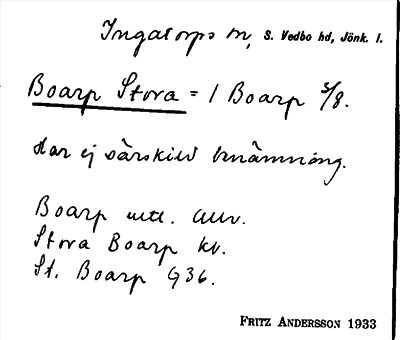 Ingatorps sn, S. Vedbo hd, Jönk. l.
Boarp Stora = 1 Boarp 5/8.
Har ej särskild benämning.
Boarp uttl. Allm.
Stora Boarp kv.
St. Boarp G36.
FRITZ ANDERSSON 1933